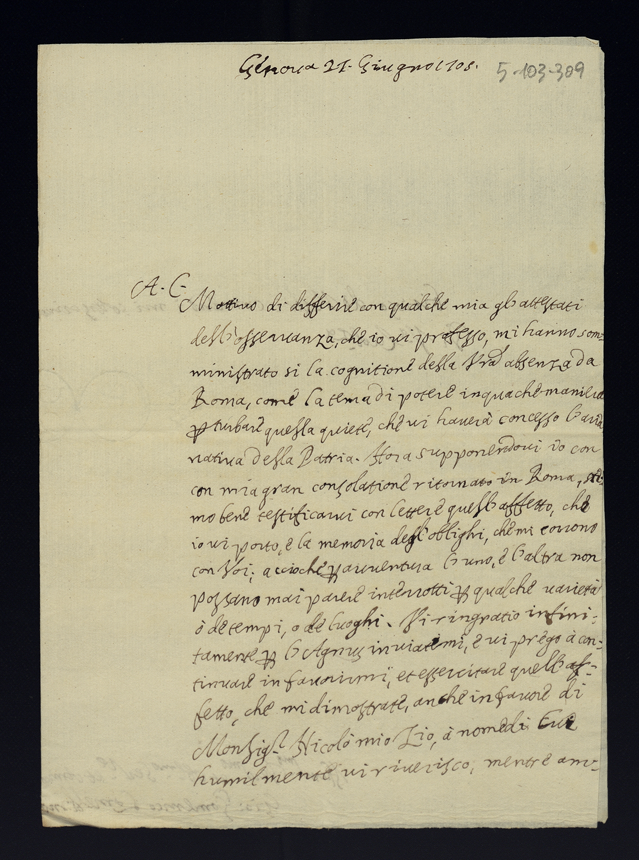 Genova 21. Giugno 1708.
5-103-309
A. C.
Mottivo di differire con qualche mia gli attestati
dell'osservanza, che io vi professo, mi hanno som=
ministrato si la cognitione della Vra absenza da
Roma, come la tema di potere in qualche maniera
pturbare quella quiete, che vi haverà concesso l'aria
nativa della Patria. Hora supponendovi io con
con mia gran consolatione ritornato in Roma, sti=
mo bene testificarvi con lettere quell'affetto, che
io vi porto, e la memoria degl'oblighi, che mi corrono
con Voi; acciochè p avventura l'uno, e l'altra non
possano mai parere interrotti p qualche varietà
ò de tempi, o de luoghi. Vi ringratio infini=
tamente p l'Agnus inviatemi, e vi prego à con=
tinuare in favorirmi, et essercitare quell'af=
fetto, che mi dimostrate, anche in favore di
Monsig.r Nicolò mio Zio, à nome di cui
humilmente vi riverisco; mentre am=